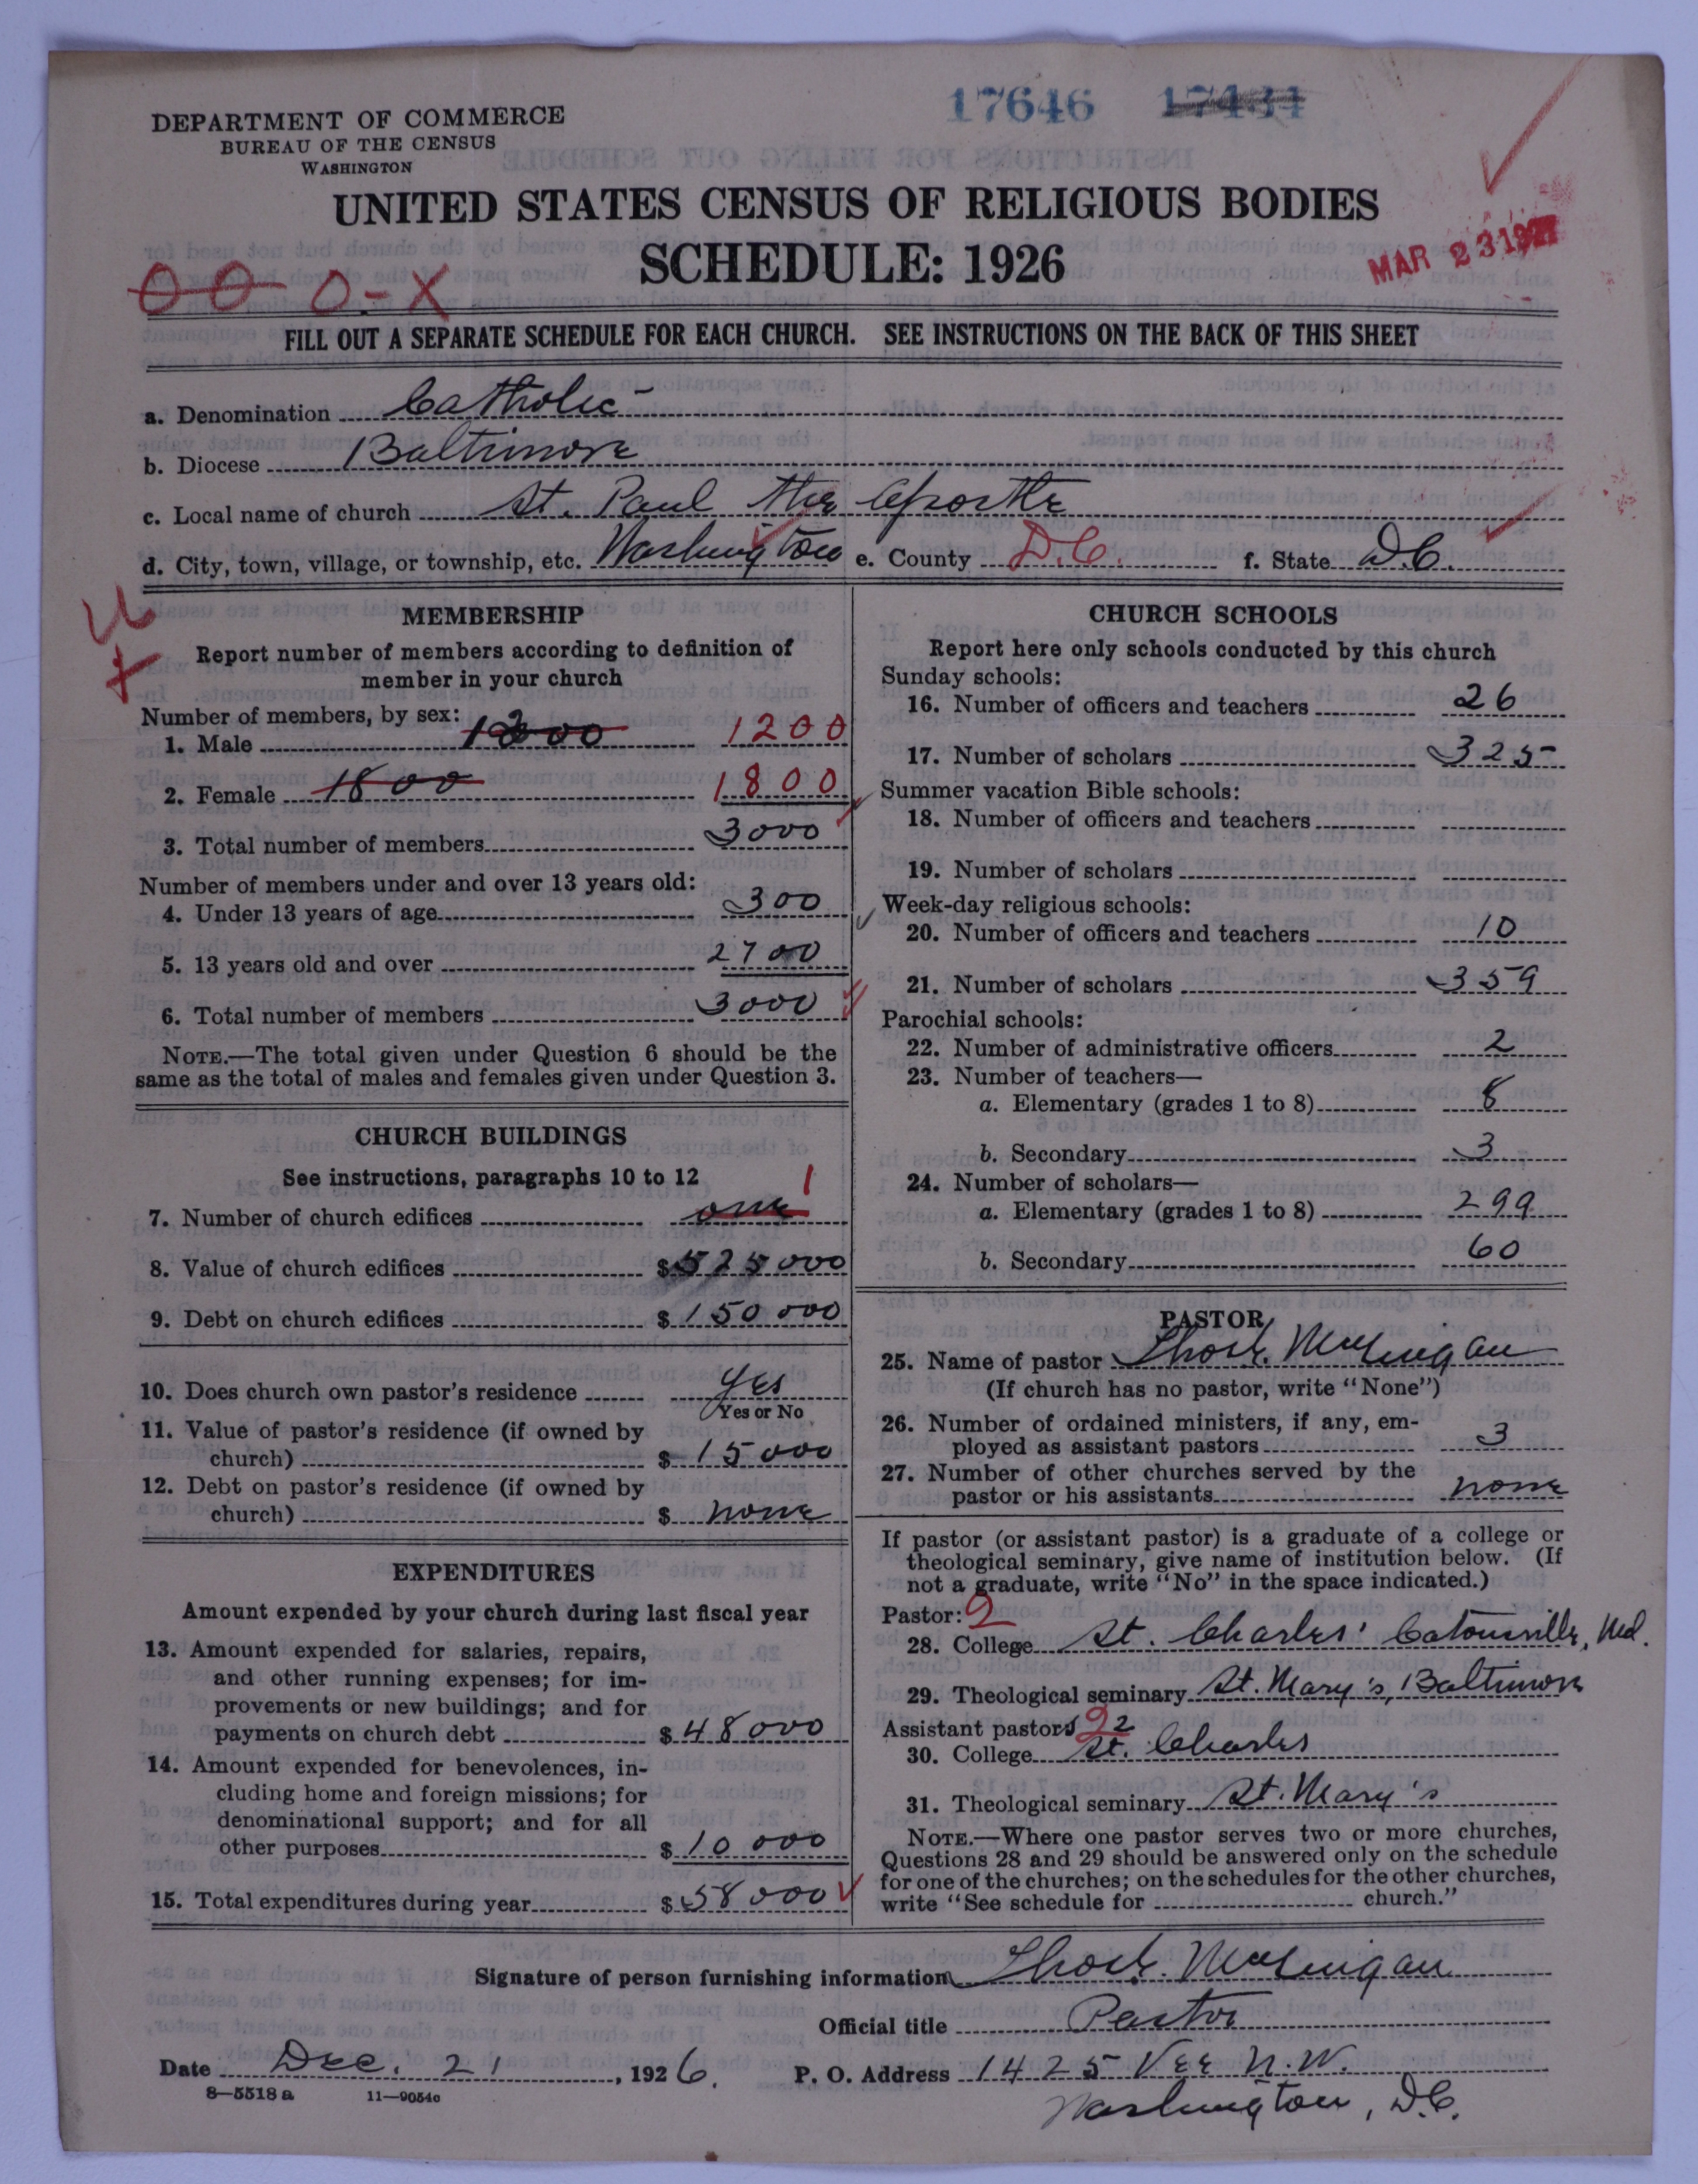 17646 17434
DEPARTMENT OF COMMERCE
BUREAU OF THE CENSUS
WASHINGTON
UNITED STATES CENSUS OF RELIGIOUS BODIES
SCHEDULE: 1926
MAR 23 1927
0 0 0-X
FILL OUT A SEPARATE SCHEDULE FOR EACH CHURCH. SEE INSTRUCTIONS ON THE BACK OF THIS SHEET
a. Denomination Catholic
b. Diocese Baltimore
c. Local name of church St. Paul the Apostle
d. City, town, village, or township, etc. Washington e. County D.C. f. State D.C.
MEMBERSHIP
Report number of members according to definition of
member in your church
Number of members, by sex:
1. Male 1200 1200
2. Female 1800 1800
3. Total number of members 3000
Number of members under and over 13 years old:
4. Under 13 years of age 300
5. 13 years old and over 2700
6. Total number of members 3000
NOTE.—The total given under Question 6 should be the
same as the total of males and females given under Question 3.
CHURCH BUILDINGS
See instructions, paragraphs 10 to 12
7. Number of church edifices one 1
8. Value of church edifices $525000
9. Debt on church edifices $150000
10. Does church own pastor's residence Yes
Yes or No
11. Value of pastor's residence (if owned by
church) $15000
12. Debt on pastor's residence (if owned by
church) $ none
EXPENDITURES
Amount expended by your church during last fiscal year
13. Amount expended for salaries, repairs,
and other running expenses; for im-
provements or new buildings; and for
payments on church debt $48000
14. Amount expended for benevolences, in-
cluding home and foreign missions; for
denominational support; and for all
other purposes $10000
15. Total expenditures during year $58000
CHURCH SCHOOLS
Report here only schools conducted by this church
Sunday schools:
16. Number of officers and teachers 26
17. Number of scholars 325
Summer vacation Bible schools:
18. Number of officers and teachers
19. Number of scholars
Week-day religious schools:
20. Number of officers and teachers 10
21. Number of scholars 359
Parochial schools:
22. Number of administrative officers 2
23. Number of teachers—
a. Elementary (grades 1 to 8) 8
b. Secondary 3
24. Number of scholars—
a. Elementary (grades 1 to 8) 299
b. Secondary 60
PASTOR
25. Name of pastor
(If church has no pastor, write "None")
26. Number of ordained ministers, if any, em-
ployed as assistant pastors 3
27. Number of other churches served by the
pastor or his assistants none
If pastor (or assistant pastor) is a graduate of a college or
theological seminary, give name of institution below. (If
not a graduate, write "No" in the space indicated.)
Pastor: 2
28. College St. Charles' Catonsville, Md.
29. Theological seminary St. Mary's, Baltimore
Assistant pastors 2 2
30. College St. Charles
31. Theological seminary St. Mary's
NOTE.—Where one pastor serves two or more churches,
Questions 28 and 29 should be answered only on the schedule
for one of the churches; on the schedules for the other churches,
write "See schedule for church."
Signature of person furnishing information
Official title Pastor
Date Dec. 21, 1926. P. O. Address 1425 Vee N.W.
8—5518 a 11—9054c Washington, D.C.